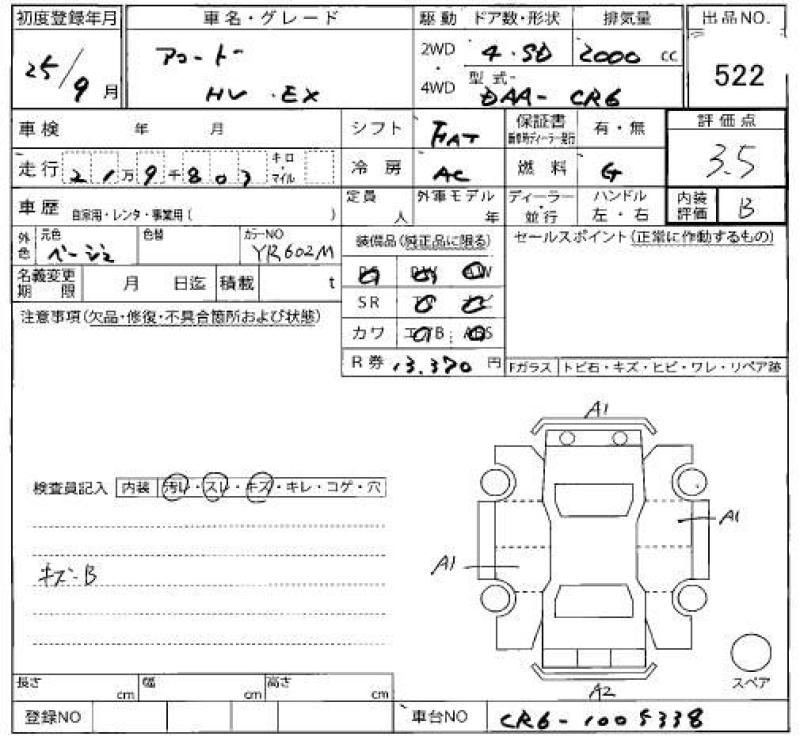 初度登録年月 車名・グレード 駆動 ドア数・形状 排気量 出品NO.
25/9月 アコードー HV・EX 2WD・4WD 4・SD 2000cc 522
型式 DAA- CR6
車検 年 月 シフト FAT 保証書 新車時ディーラー発行 有・無 評価点 3.5
走行 21万9千803 キロ・マイル 冷房 AC 燃料 G
車歴 自家用・レンタ・事業用( ) 定員 人 外車モデル 年 ディーラー・並行 ハンドル 左・右 内装評価 B
外色 元色 ベージュ 色替 カラーNO YR602M 装備品(純正品に限る) セールスポイント(正常に作動するもの)
名義変更期限 月 日迄 積載 t
SR
注意事項(欠品・修復・不具合箇所および状態) カワ
R券 13,370円 Fガラス トビ石・キズ・ヒビ・ワレ・リペア跡
A1
検査員記入 内装 汚レ・スレ・キズ・キレ・コゲ・穴
A1
A1
キズ-B
スペア
A2
長さ cm 幅 cm 高さ cm
登録NO 車台NO CR6-1005338